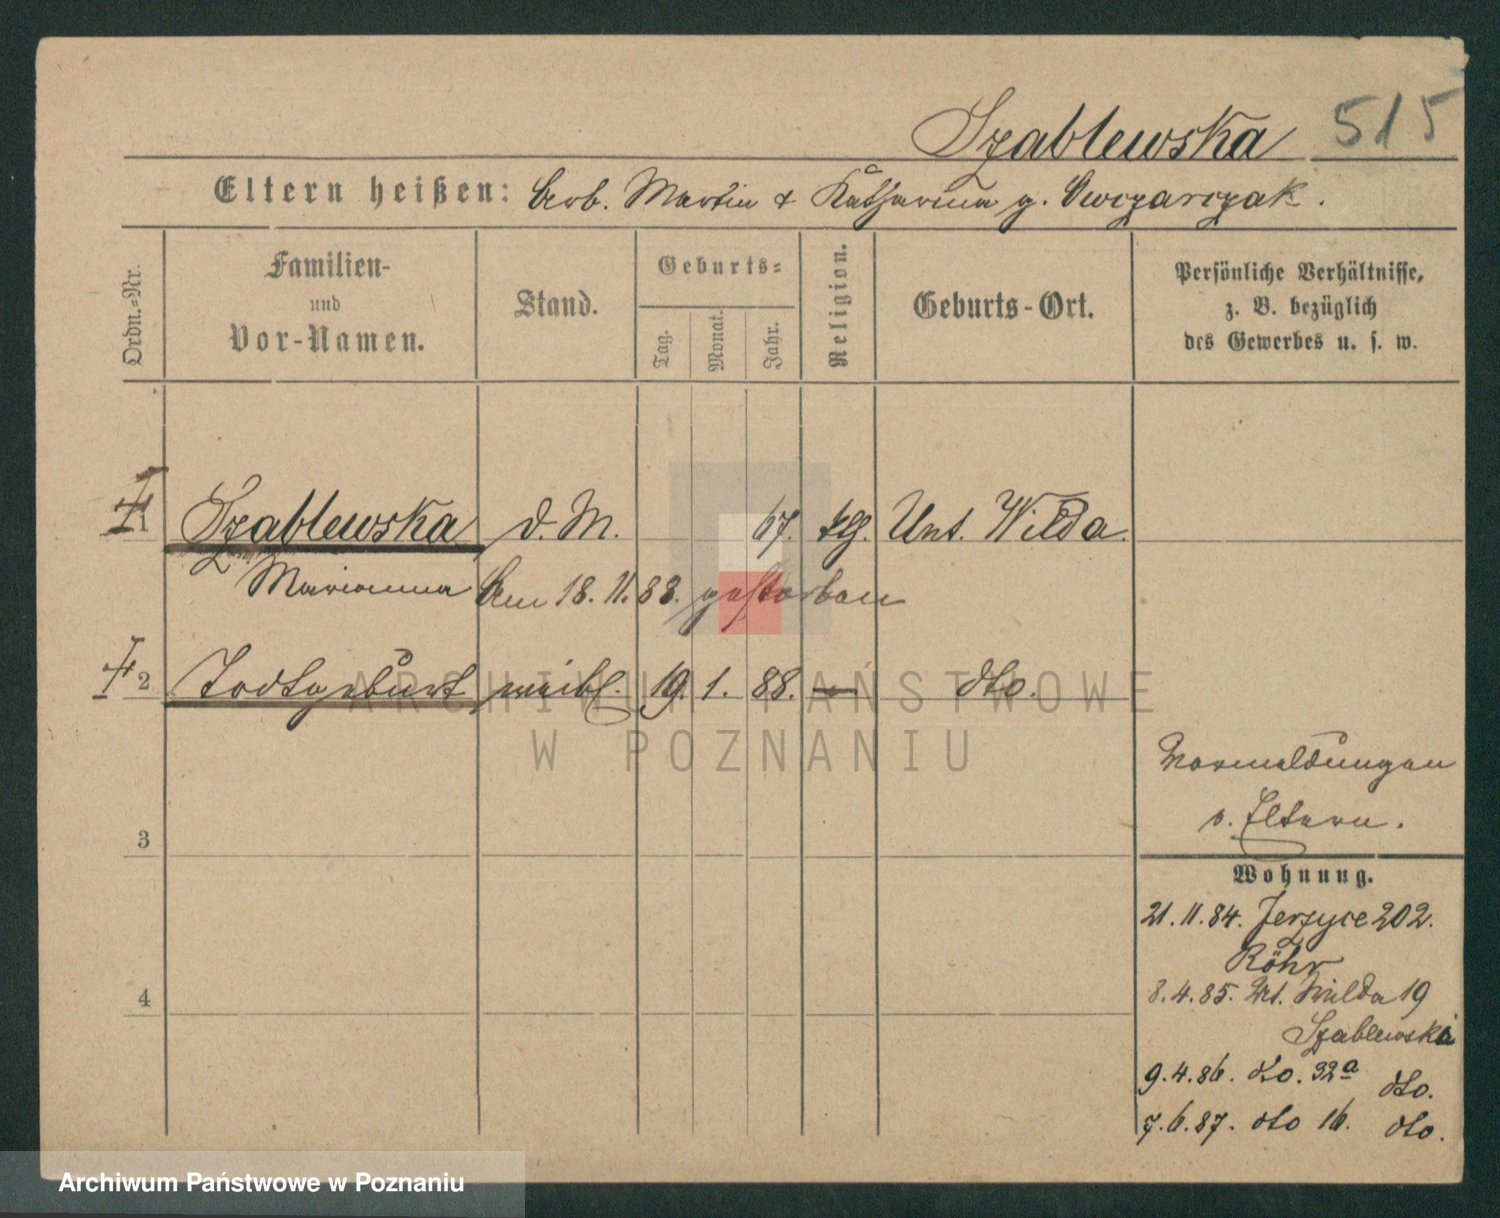 Szablewska 515
Eltern heißen: Arb. Martin & Katharina g. Owczarczak.
Ordn.-Nr.
Familien-
und
Vor-Namen.
Stand.
Geburts-
Tag.
Monat.
Jahr.
Religion.
Geburts-Ort.
Persönliche Verhältnisse,
z. B. bezüglich
des Gewerbes u. s. w.
1 Szablewska d. M. 67. klg. Unt. Wilda.
Marianna Am 18. 11. 88. gestorben
2 Todtgeburt weibl. 19. 1. 88. — dto.
ARCHIWUM PAŃSTWOWE
W POZNANIU
Vormeldungen
s. Eltern.
3
Wohnung.
21. 11. 84. Jerzyce 202.
Röhr
4
8. 4. 85. Wilda 19
Szablewski
9. 4. 86. dto. 32a dto.
7. 6. 87. dto 16. dto.
Archiwum Państwowe w Poznaniu